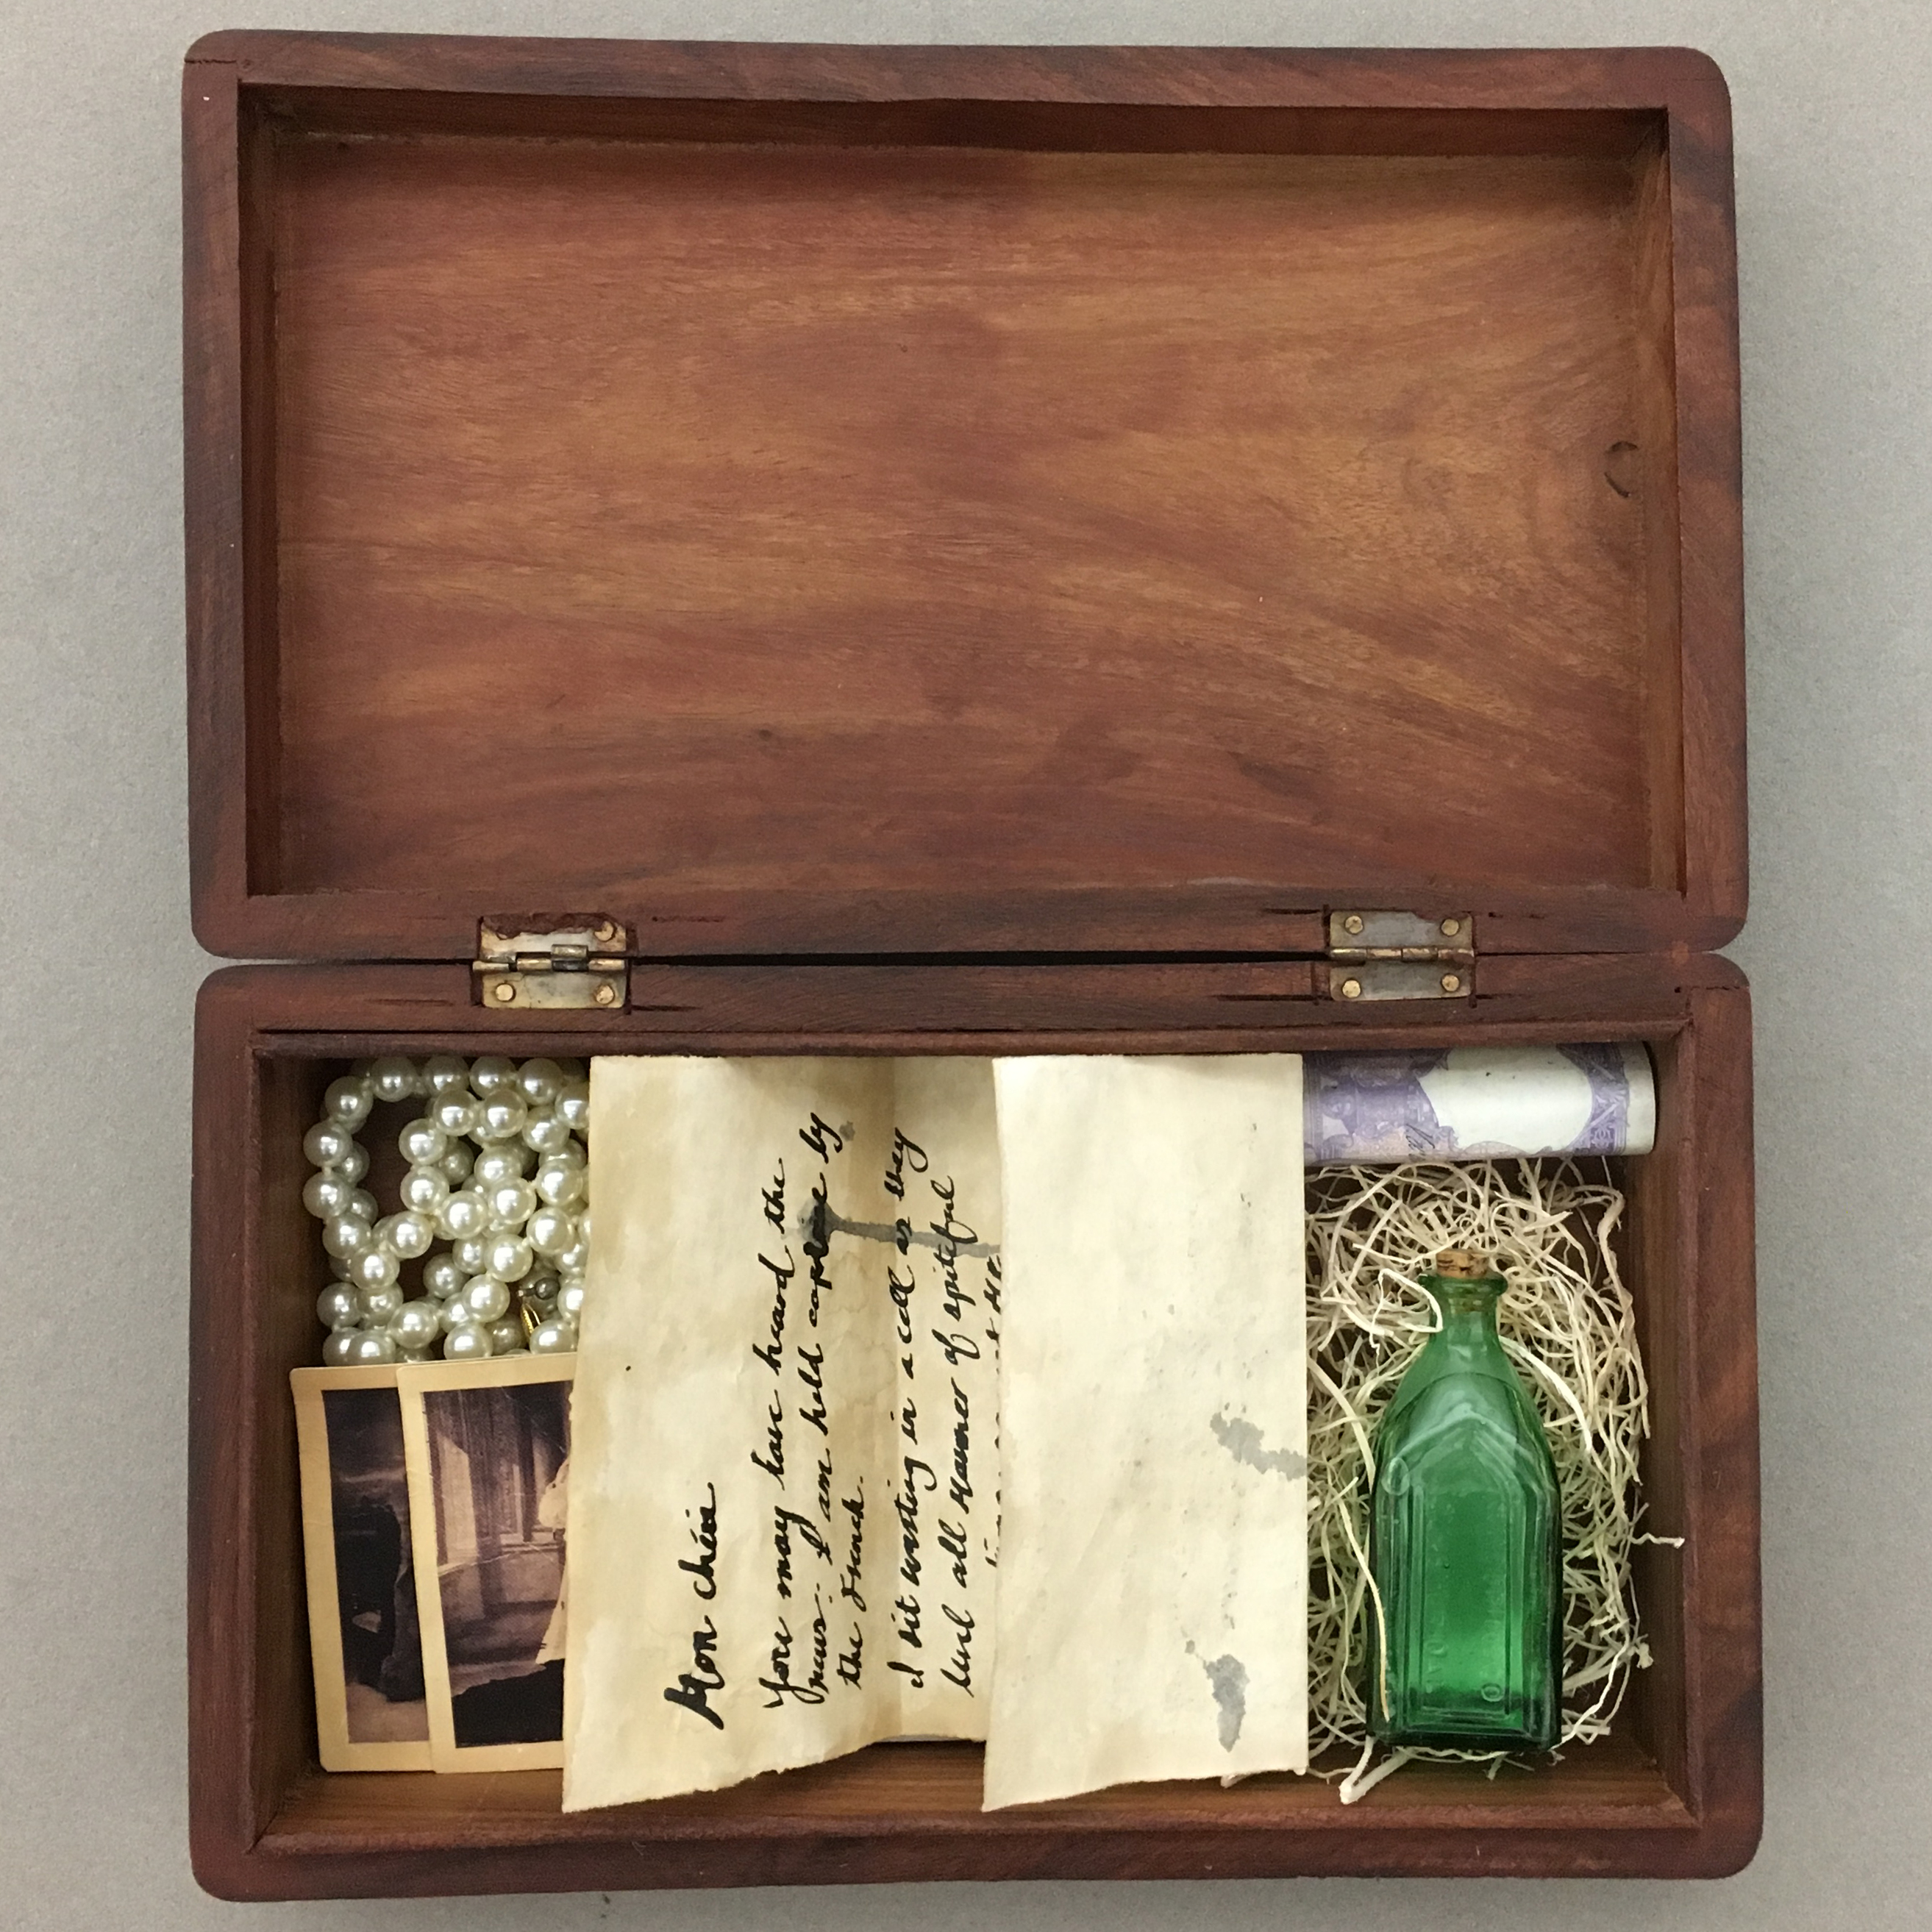 Mon chéri
You may have heard the
news. I am held captive by
the French.
I sit writing in a cell as they
level all manner of spiteful